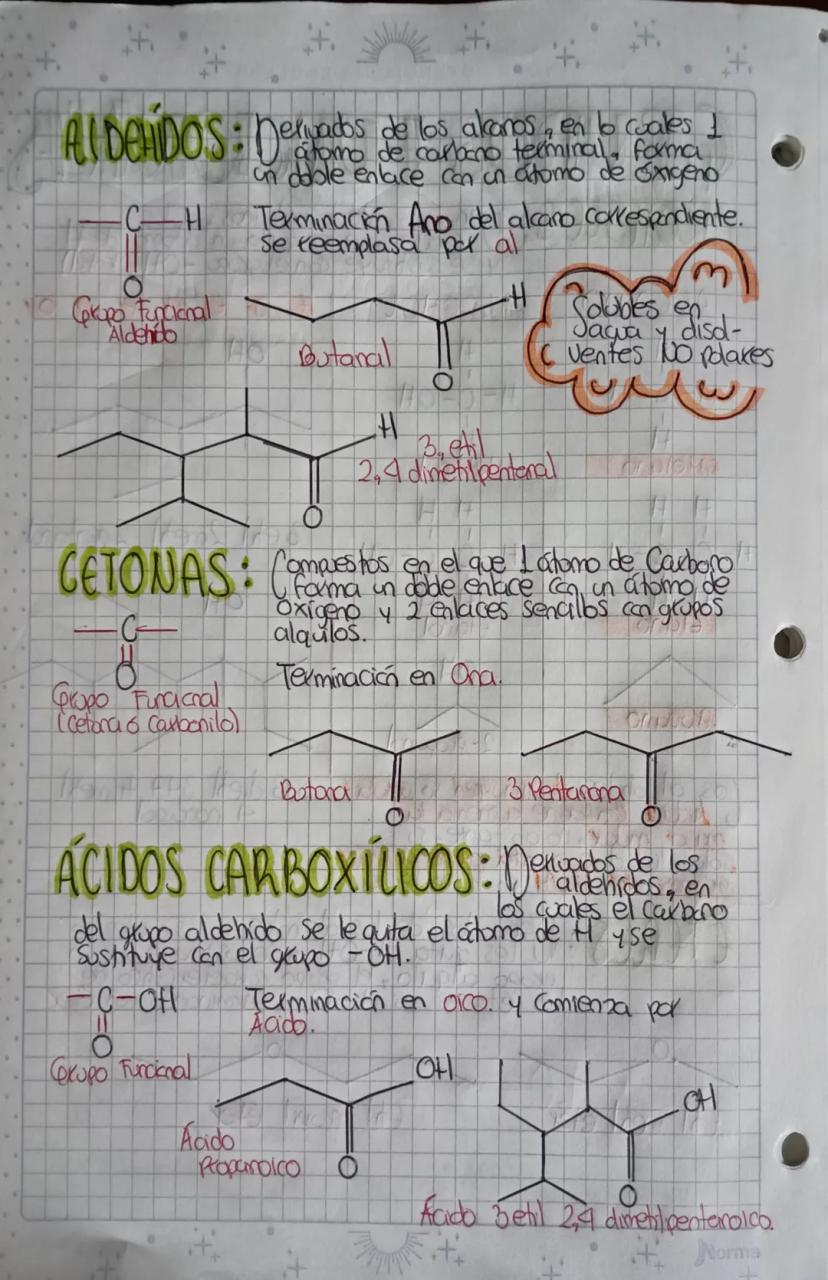 AlDEHÍDOS: Derivados de los alcanos, en lo cuales 1
átomo de carbono terminal, forma
un doble enlace con un átomo de oxígeno
—C—H
O
Terminación Ano del alcano correspondiente.
se reemplasa por al
Grupo Funcional
Aldehído
H
O
Butanal
Solubles en
agua y disol-
ventes NO polares
H
O
3, etil
2,4 dimetilpentanal
CETONAS: Compuestos en el que 1 átomo de Carbono
forma un doble enlace con un átomo de
oxígeno y 2 enlaces sencillos con grupos
alquilos.
—C—
O
Terminación en Ona.
Grupo Funcional
(cetona ó carbonilo)
Butona
O
3 Pentanona
O
ÁCIDOS CARBOXÍLICOS: Derivados de los
aldehídos, en
los cuales el carbono
del grupo aldehído se le quita el átomo de H y se
sustituye con el grupo -OH.
—C—OH
O
Terminación en oico. y comienza por
Ácido.
Grupo Funcional
OH
O
Ácido
Propanoico
OH
O
Ácido 3 etil 2,4 dimetilpentanoico.
Norma